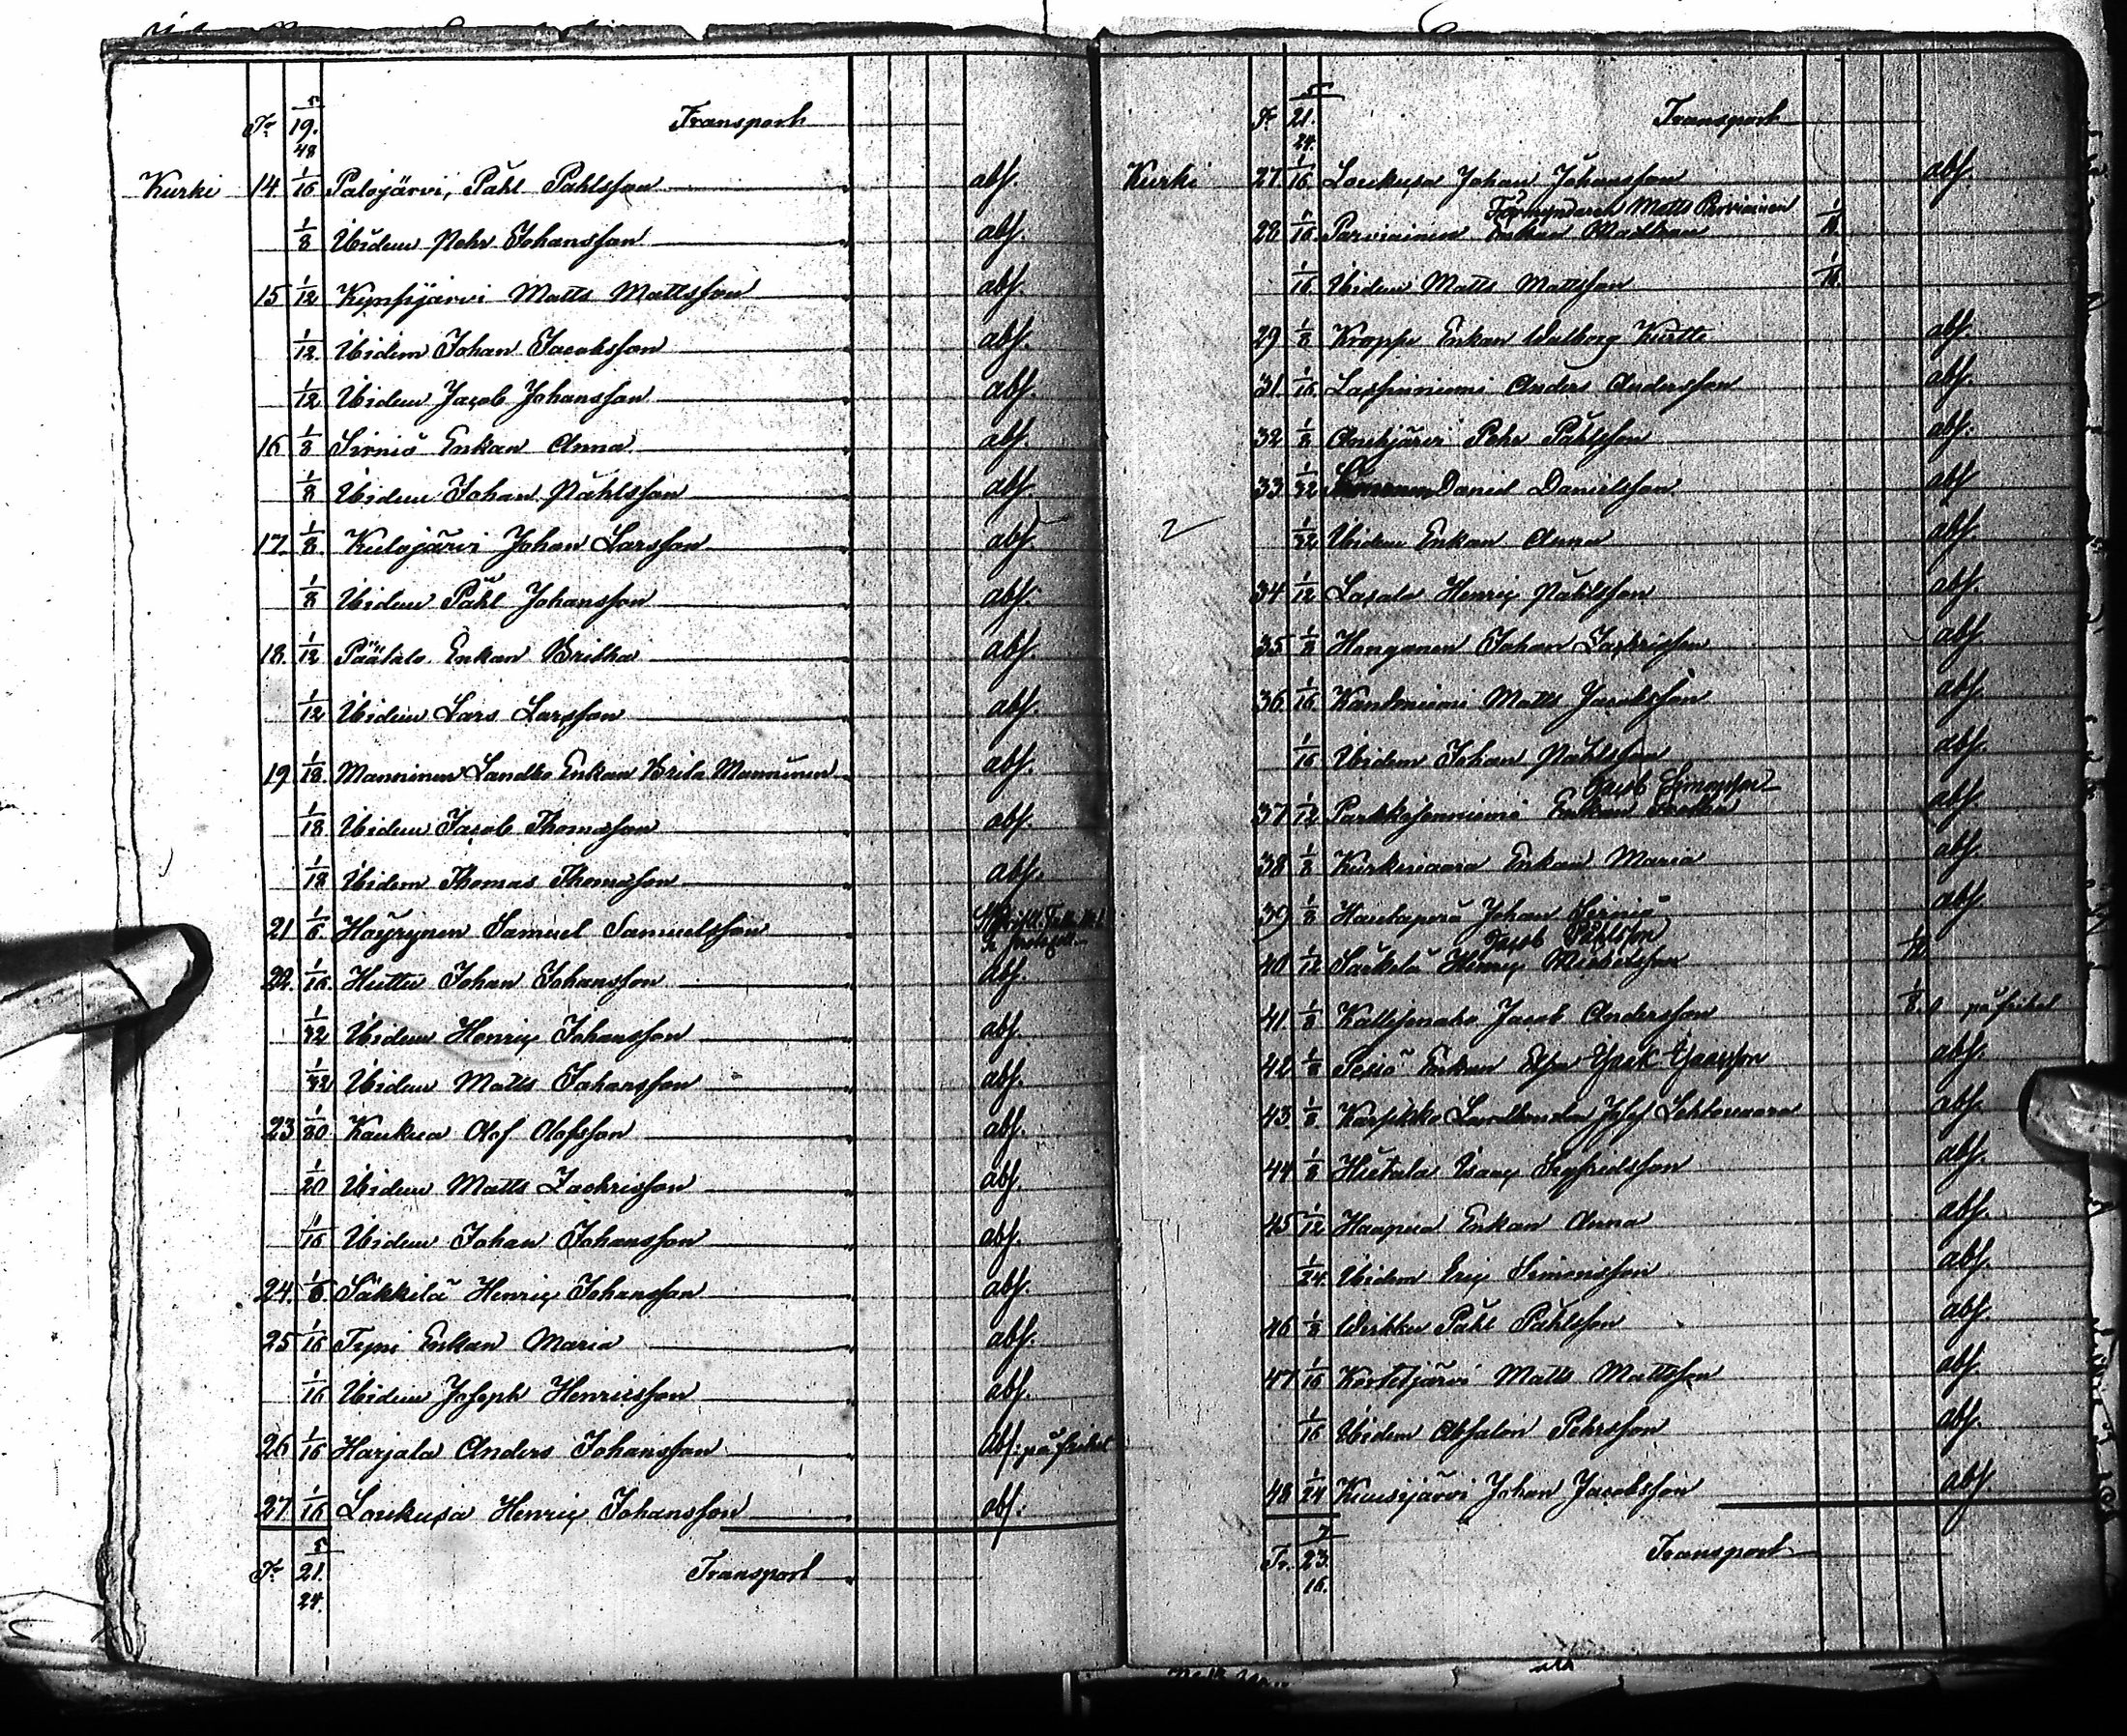 Tr 19. 5/48 Transport
Kurki 14 1/16 Palojärvi, Påhl Påhlsson abs.
1/8 Ibidem Pehr Johansson abs.
15 1/12 Kynsijärvi Matts Mattsson abs.
1/12 Ibidem Johan Jacobsson abs.
1/12 Ibidem Jacob Johansson abs.
16 1/8 Sirniö Enkan Anna abs.
1/8 Ibidem Johan Påhlsson abs.
17 1/8 Kulojärvi Johan Larsson abs.
1/8 Ibidem Påhl Johansson abs.
18. 1/12 Päätalo Enkan Britha abs.
1/12 Ibidem Lars Larsson abs.
19 1/18 Manninen Landbo Enkan Brita Manninen abs.
1/18 Ibidem Jacob Thomasson abs.
1/18 Ibidem Thomas Thomasson abs.
21 1/6 Häyrynen Samuel Samuelsson
22. 1/16 Huttu Johan Johansson abs.
1/32 Ibidem Henric Johansson abs.
1/32 Ibidem Matts Johansson abs.
23 1/80 Kaukua Olof Olofsson abs.
1/20 Ibidem Matts Zachrisson abs.
1/16 Ibidem Johan Johansson abs.
24. 1/6 Säkkilä Henric Johansson abs.
25 1/16 Tyni Enkan Maria abs.
1/16 Ibidem Joseph Henricsson abs.
26 1/16 Harjala Anders Johansson abs. på frihet
27 1/16 Loukusa Henric Johansson abs.
Tr 21. 5/24. Transport
Tr 21. 5/24. Transport
Kurki 27 1/16 Loukusa Johan Johansson abs.
Förmyndaren Matts Parviainen
28 1/16 Parviainen Enkan 1/16
1/16 Ibidem Matts Mattsson 1/16.
29 1/8 Kroppi Enkan Walborg Kurtti abs.
31. 1/16 Anders Andersson abs.
32 1/8 Pehr Påhlsson abs.
33 1/32 Daniel Danielsson abs
2 1/32 Ibidem Enkan Anna abs.
34 1/12 Lasala Henric Påhlsson abs.
35 1/8 Honganen Johan Zachrisson abs
36 1/16 Kantoniemi Matts Jacobsson abs.
1/16 Ibidem Johan Påhlsson abs.
Jacob Simonsson
37 1/12 Parkkosenniemi Enkan abs.
38 1/8 Kurkivaara Enkan Maria abs.
39 1/8 Hautaperä Johan Sirniö abs
Jacob Påhlsson
40 1/12 Särkelä Henric 1/12.
41 1/8 Jacob Andersson 1/8. på frihet
42 1/8 Enkan abs.
43 1/8 Karpikko Lehtovaara abs.
44 1/8 Hietala Isaac Sigfridsson abs.
45 1/12 Haapua Enkan Anna abs.
1/24. Ibidem Eric Simonsson abs.
46 1/8 Wirkku Påhl Påhlsson abs.
47 1/16 Kortetjärvi Matts Mattsson abs.
1/16 Ibidem Absalon Pehrsson abs.
48 1/24 Kuusijärvi Johan Jacobsson abs.
Tr. 23. 7/16. Transport